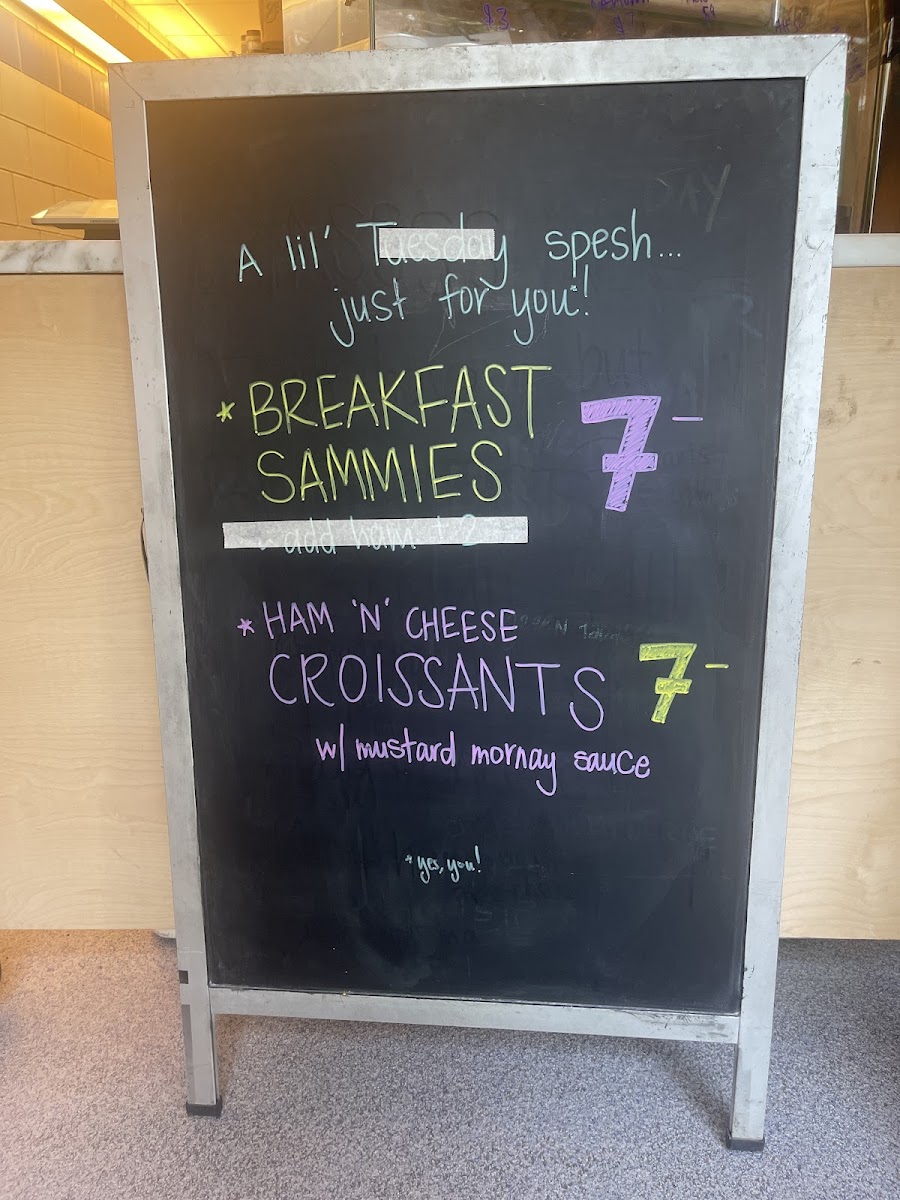 A lil' Tuesday spesh...
just for you*!
* BREAKFAST
SAMMIES 7-
~ add ham + 2
* HAM 'N' CHEESE
CROISSANTS 7-
w/ mustard mornay sauce
* yes, you!